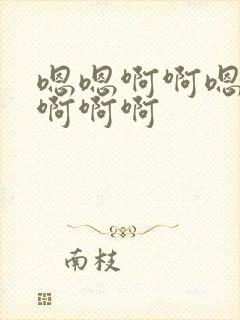 嗯嗯啊啊嗯
啊啊啊
南枝